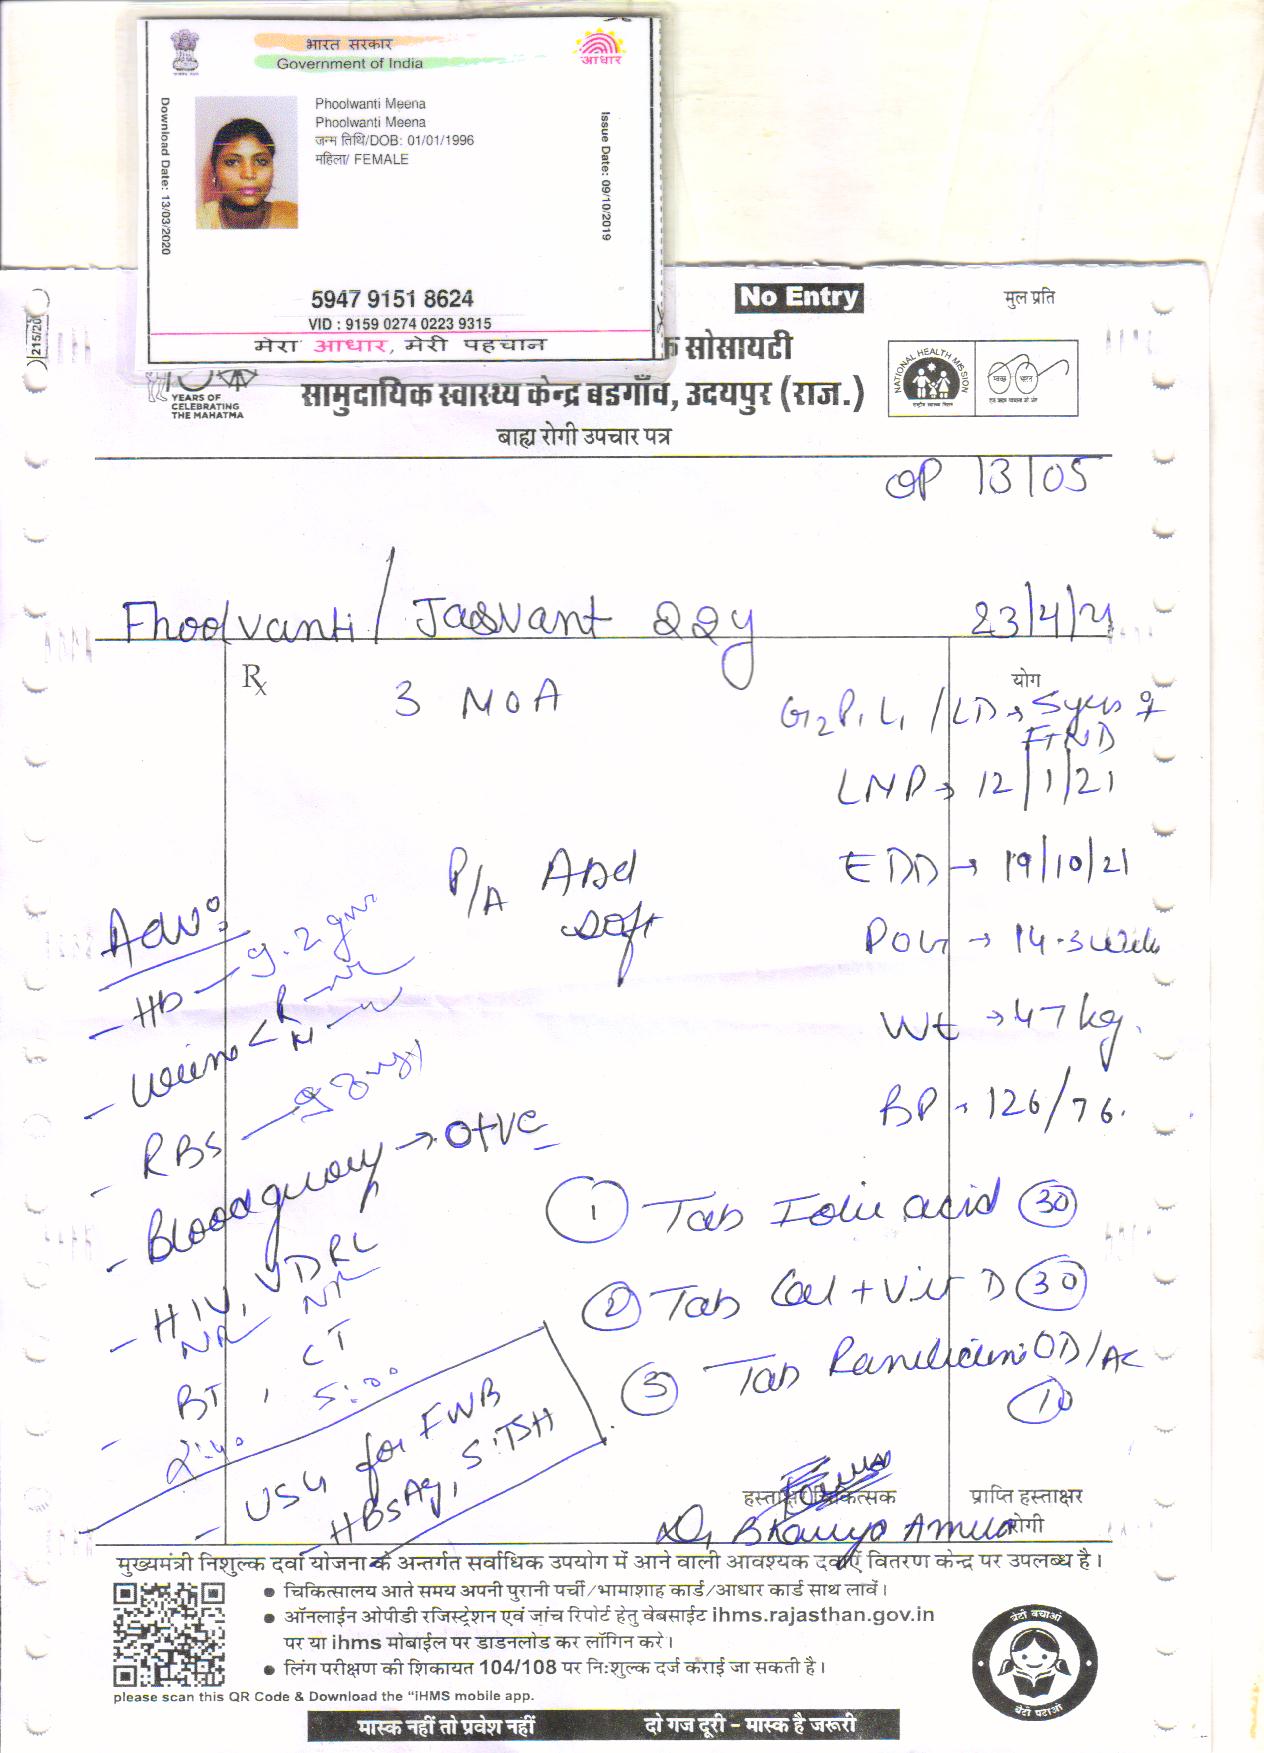 भारत सरकार
Government of India
आधार
Download Date: 13/03/2020
Phoolwanti Meena
Phoolwanti Meena
जन्म तिथि/DOB: 01/01/1996
महिला/ FEMALE
Issue Date: 09/10/2019
5947 9151 8624
VID : 9159 0274 0223 9315
मेरा आधार, मेरी पहचान
No Entry
मुल प्रति
215/20
सोसायटी
YEARS OF
CELEBRATING
THE MAHATMA
सामुदायिक स्वास्थ्य केन्द्र बडगाँव, उदयपुर (राज.)
NATIONAL HEALTH MISSION
स्वच्छ भारत
बाह्य रोगी उपचार पत्र
OP 13/05
Fhoolvanti / Jasvant 22y 23/4/21
Rx
योग
3 MOA
G2P1L1 / LD → 5yrs ♀
FTND
LMP → 12/1/21
P/A Abd
soft
EDD → 19/10/21
Adv:
POG → 14.3 week
- Hb - 9.2 gm
Wt → 47 kg.
- Urine
BP → 126/76.
- RBS
- Blood group → O+ve
① Tab Folic acid 30
- HIV, VDRL
NR NR
② Tab Cal + Vit D 30
- BT, CT
2:40 5:00
③ Tab Ranitidine OD/AC
10
- USG for FWB
- HBsAg, S.TSH
हस्ताक्षर चिकित्सक
प्राप्ति हस्ताक्षर
रोगी
मुख्यमंत्री निशुल्क दवा योजना के अन्तर्गत सर्वाधिक उपयोग में आने वाली आवश्यक दवाएँ वितरण केन्द्र पर उपलब्ध है।
● चिकित्सालय आते समय अपनी पुरानी पर्ची/भामाशाह कार्ड/आधार कार्ड साथ लावें।
● ऑनलाईन ओपीडी रजिस्ट्रेशन एवं जांच रिपोर्ट हेतु वेबसाईट ihms.rajasthan.gov.in
पर या ihms मोबाईल पर डाडनलोड कर लॉगिन करे।
● लिंग परीक्षण की शिकायत 104/108 पर निःशुल्क दर्ज कराई जा सकती है।
बेटी बचाओ
बेटी पढ़ाओ
please scan this QR Code & Download the “iHMS mobile app.
मास्क नहीं तो प्रवेश नहीं दो गज दूरी – मास्क है जरूरी